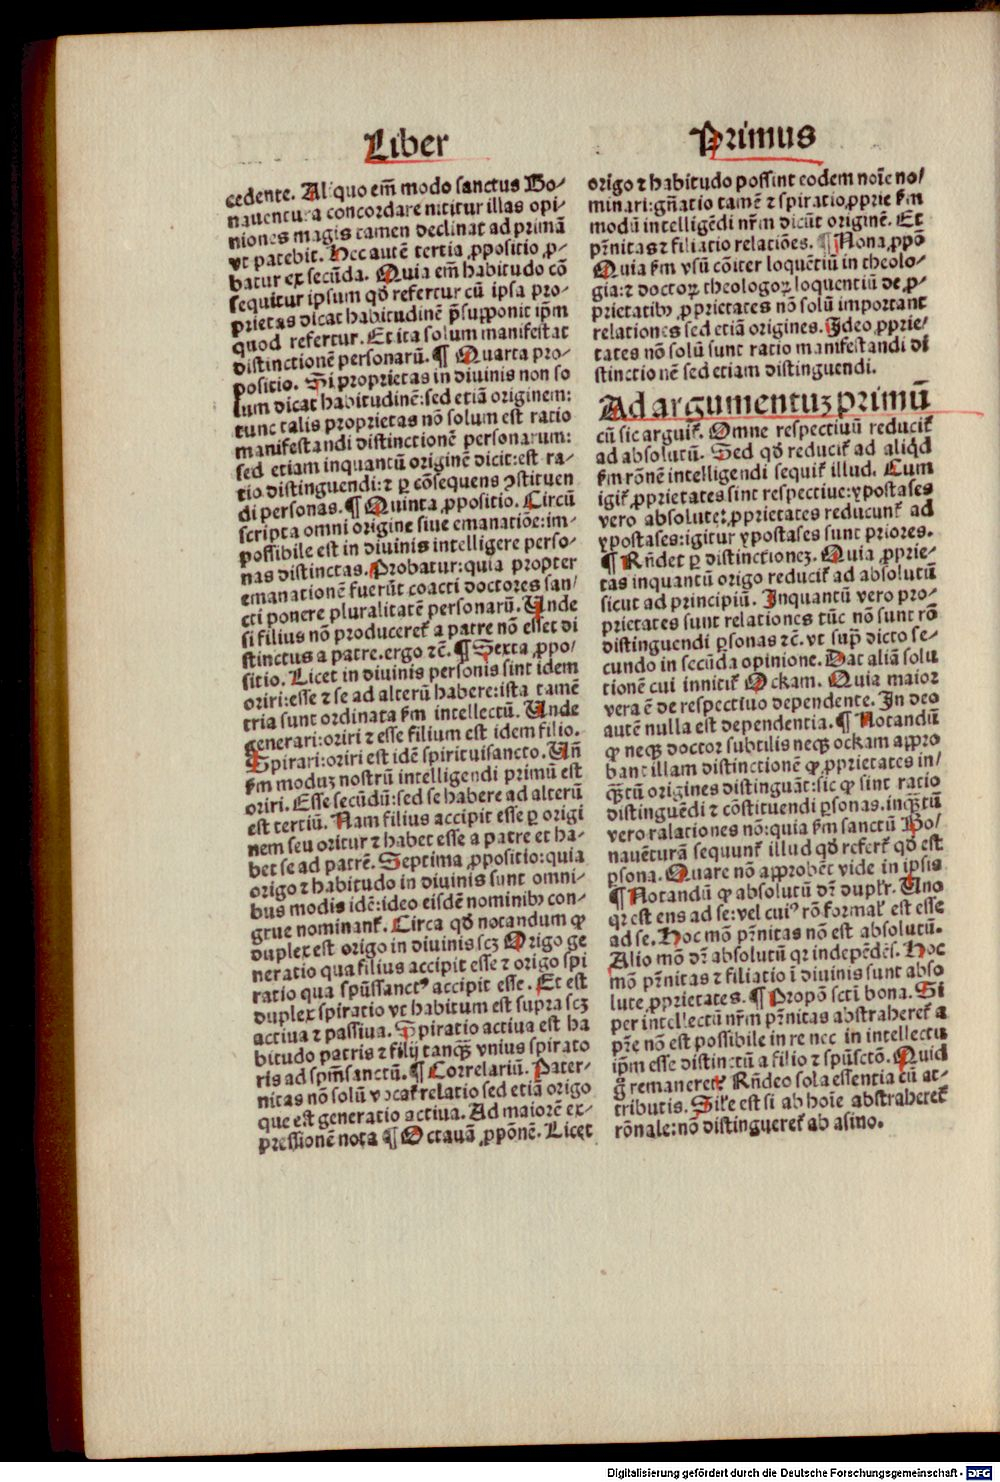 Liber
cedente. Aliquo em̄ modo sanctus Bo-
nauentura concordare nititur illas opi-
niones magis tamen declinat ad primā
vt patebit. Hec autē tertia ꝓpositio ꝓ-
batur ex secūda. Quia em̄ habitudo cō
sequitur ipsum qđ refertur cū ipsa pro-
prietas dicat habitudinē p̄supponit ip̄m
quod refertur. Et ita solum manifestat
distinctionē personarū. ¶ Quarta pro-
positio. Si proprietas in diuinis non so
lum dicat habitudinē: sed etiā originem:
tunc talis proprietas nō solum est ratio
manifestandi distinctionē personarum:
sed etiam inquantū originē dicit: est ra-
tio distinguendi: ⁊ ꝑ cōsequens ꝯstituen
di personas. ¶ Quinta ꝓpositio. Circū
scripta omni origine siue emanatiōe: im-
possibile est in diuinis intelligere perso-
nas distinctas. Probatur: quia propter
emanationē fuerūt coacti doctores san/
cti ponere pluralitatē personarū. Unde
si filius nō produceret̄ a patre nō esset di
stinctus a patre. ergo ⁊c̄. ¶ Sexta ꝓpo/
sitio. Licet in diuinis personis sint idem
oriri: esse ⁊ se ad alterū habere: ista tamē
tria sunt ordinata ẜm intellectū. Unde
generari: oriri ⁊ esse filium est idem filio.
Spirari: oriri est idē spirituisancto. Uñ
ẜm moduꝫ nostrū intelligendi primū est
oriri. Esse secūdū: sed se habere ad alterū
est tertiū. Nam filius accipit esse ꝑ origi
nem seu oritur ⁊ habet esse a patre et ha-
bet se ad patrē. Septima ꝓpositio: quia
origo ⁊ habitudo in diuinis sunt omni-
bus modis idē: ideo eisdē nominibꝰ con-
grue nominant̄. Circa qđ notandum ꝙ
duplex est origo in diuinis scꝫ Origo ge
neratio qua filius accipit esse ⁊ origo spi
ratio qua spūssanctꝰ accipit esse. Et est
duplex spiratio vt habitum est supra scꝫ
actiua ⁊ passiua. Spiratio actiua est ha
bitudo patris ⁊ filij tanq̄ꝫ vnius spirato
ris ad spm̄sanctū. ¶ Correlariū. Pater-
nitas nō solū vocat̄ relatio sed etiā origo
que est generatio actiua. Ad maiorē ex-
pressionē nota ¶ Octauā ꝓpōnē. Licet
Primus
origo ⁊ habitudo possint eodem noīe no/
minari: gñatio tamē ⁊ spiratio ꝓprie ẜm
modū intelligēdi nr̄m dicūt originē. Et
pr̄nitas ⁊ filiatio relatiōes. ¶ Nona ꝓpō
Quia ẜm vsū cōiter loquētiū in theolo-
gia: ⁊ doctoꝝ theologoꝝ loquentiū de ꝓ-
prietatibꝰ ꝓprietates nō solū important
relationes sed etiā origines. Ideo ꝓprie/
tates nō solū sunt ratio manifestandi di
stinctionē sed etiam distinguendi.
Ad argumentuꝫ primū
cū sic arguit̄. Omne respectiuū reducit̄
ad absolutū. Sed qđ reducit̄ ad aliqđ
ẜm rōnē intelligendi sequit̄ illud. Cum
igit̄ ꝓprietates sint respectiue: ypostases
vero absolute: ꝓprietates reducunt̄ ad
ypostases: igitur ypostases sunt priores.
¶ Rñdet ꝑ distinctioneꝫ. Quia ꝓprie-
tas inquantū origo reducit̄ ad absolutū
sicut ad principiū. Inquantū vero pro-
prietates sunt relationes tūc nō sunt rō
distinguendi ꝑsonas ⁊c̄. vt sup̄ dicto se-
cundo in secūda opinione. Dat aliā solu
tionē cui innitit̄ Ockam. Quia maior
vera ē de respectiuo dependente. In deo
autē nulla est dependentia. ¶ Notandū
ꝙ neqꝫ doctor subtilis neqꝫ ockam appro
bant illam distinctionē ꝙ ꝓprietates in/
q̄ꝫtū origines distinguāt: sic ꝙ sint ratio
distinguēdi ⁊ cōstituendi ꝑsonas. inq̄ꝫtū
vero ralationes nō: quia ẜm sanctū Bo/
nauēturā sequunt̄ illud qđ refert̄ qđ est
ꝑsona. Quare nō approbēt vide in ipsis
¶ Notandū ꝙ absolutū dr̄ duplr̄. Uno
qꝛ est ens ad se: vel cuiꝰ rō formal̄ est esse
ad se. Hoc mō pr̄nitas nō est absolutū.
Alio mō dr̄ absolutū qꝛ indepēdēs. Hoc
mō pr̄nitas ⁊ filiatio ī diuinis sunt abso
lute ꝓprietates. ¶ Propō scti bona. Si
per intellectū nr̄m pr̄nitas abstraheret̄ a
pr̄e nō est possibile in re nec in intellectu
ip̄m esse distinctū a filio ⁊ spūsctō. Quid
g̊ remaneret̄ Rñdeo sola essentia cū at-
tributis. Sil̄e est si ab hoīe abstraheret̄
rōnale: nō distingueret̄ ab asino.
Digitalisierung gefördert durch die Deutsche Forschungsgemeinschaft - DFG